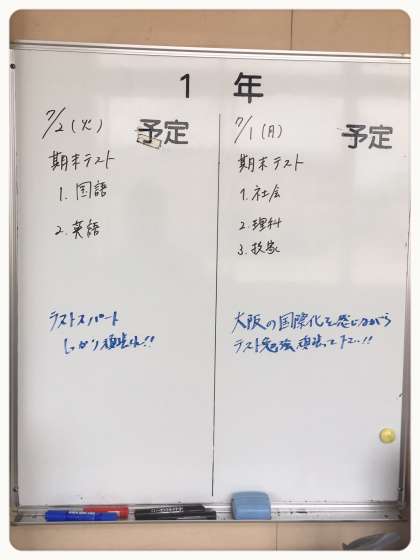 1 年
7/2(火) 予定
期末テスト
1. 国語
2. 英語
ラストスパート
しっかり頑張れ!!
7/1(月) 予定
期末テスト
1. 社会
2. 理科
3. 技家
大阪の国際化を感じながら
テスト勉強頑張って下さい!!